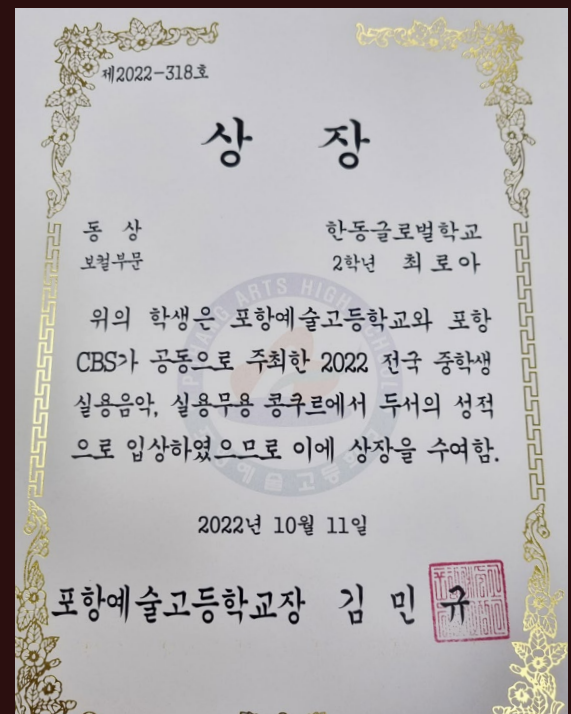 제2022-318호
상 장
동 상 한동글로벌학교
보컬부문 2학년 최로아
위의 학생은 포항예술고등학교와 포항
CBS가 공동으로 주최한 2022 전국 중학생
실용음악, 실용무용 콩쿠르에서 두서의 성적
으로 입상하였으므로 이에 상장을 수여함.
2022년 10월 11일
포항예술고등학교장 김 민 규